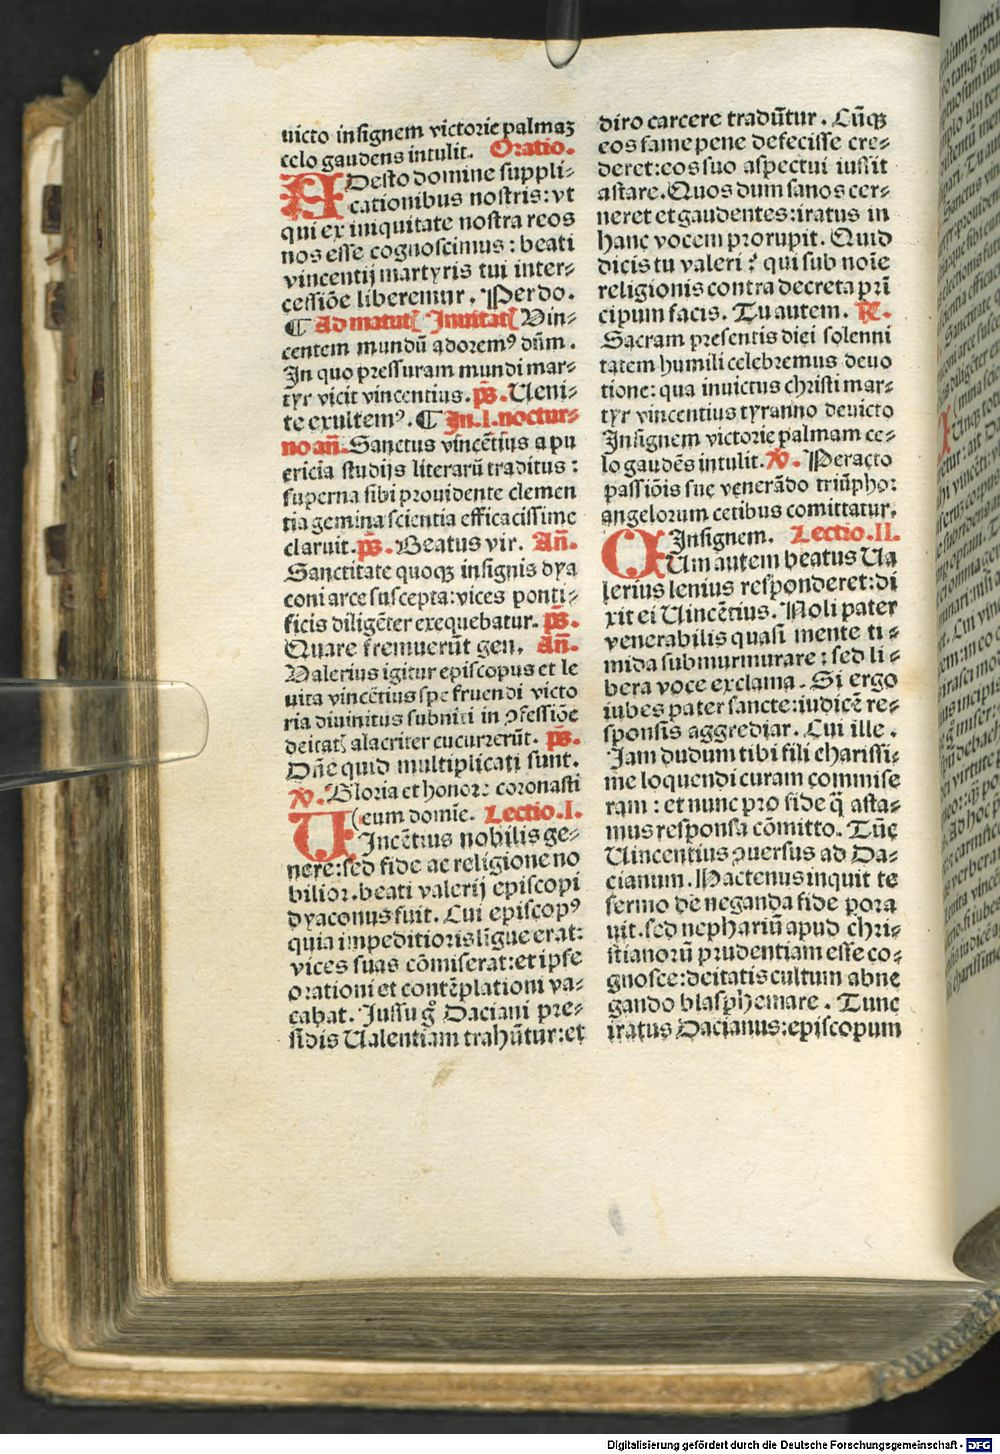 uicto insignem victorie palmaꝫ
celo gaudens intulit. Oratio.
ADesto domine suppli⸗
cationibus nostris: vt
qui ex iniquitate nostra reos
nos esse cognoscimus: beati
vincentij martyris tui inter⸗
cessiōe liberemur. Per do.
¶ Ad matut̄ Inuitat̄ Vin⸗
centem mundū adoremꝰ dūm.
In quo pressuram mundi mar⸗
tyr vicit vincentius. ps̄. Ueni⸗
te exultemꝰ. ¶ In.I.noctur⸗
no an̄. Sanctus vincētius a pu
ericia studijs literarū traditus:
superna sibi prouidente clemen
tia gemina scientia efficacissime
claruit. ps̄. Beatus vir. An̄.
Sanctitate quoqꝫ insignis dya
coni arce suscepta: vices ponti⸗
ficis diligēter exequebatur. ps̄.
Quare fremuerūt gen. An̄.
Valerius igitur episcopus et le
uita vincētius spe fruendi victo
ria diuinitus subniti in ꝯfessiōe
deitat̄ alacriter cucurrerūt. ps̄.
Dn̄e quid multiplicati sunt.
℣. Gloria et honore coronasti
(eum domīe. Lectio.I.
UIncētius nobilis ge⸗
nere: sed fide ac religione no
bilior. beati valerij episcopi
dyaconus fuit. Cui episcopꝰ
quia impeditioris ligue erat:
vices suas cōmiserat: et ipse
orationi et contēplationi va⸗
cabat. Jussu gͦ Daciani pre⸗
sidis Ualentiam trahūtur: et
diro carcere tradūtur. Cūqꝫ
eos fame pene defecisse cre⸗
deret: eos suo aspectui iussit
astare. Quos dum sanos cer⸗
neret et gaudentes: iratus in
hanc vocem prorupit. Quid
dicis tu valeri? qui sub noīe
religionis contra decreta prī
cipum facis. Tu autem. ℟.
Sacram presentis diei solenni
tatem humili celebremus deuo
tione: qua inuictus christi mar⸗
tyr vincentius tyranno deuicto
Insignem victorie palmam ce⸗
lo gaudēs intulit. ℣. Peracto
passiōis sue venerādo triūphor
angelorum cetibus comittatur.
Insignem. Lectio.II.
CUm autem beatus Ua
lerius lenius responderet: di
xit ei Uincētius. Noli pater
venerabilis quasi mente ti⸗
mida submurmurare: sed li⸗
bera voce exclama. Si ergo
iubes pater sancte: iudicē re⸗
sponsis aggrediar. Cui ille.
Jam dudum tibi fili charissi⸗
me loquendi curam commise
ram: et nunc pro fide q̄ asta⸗
mus responsa cōmitto. Tūc
Uincentius ꝯuersus ad Da⸗
cianum. Hactenus inquit te
sermo de neganda fide pora
uit. sed nephariū apud chri⸗
stianorū prudentiam esse co⸗
gnosce: deitatis cultum abne
gando blasphemare. Tunc
iratus Dacianus: episcopum
Digitalisierung gefördert durch die Deutsche Forschungsgemeinschaft - DFG